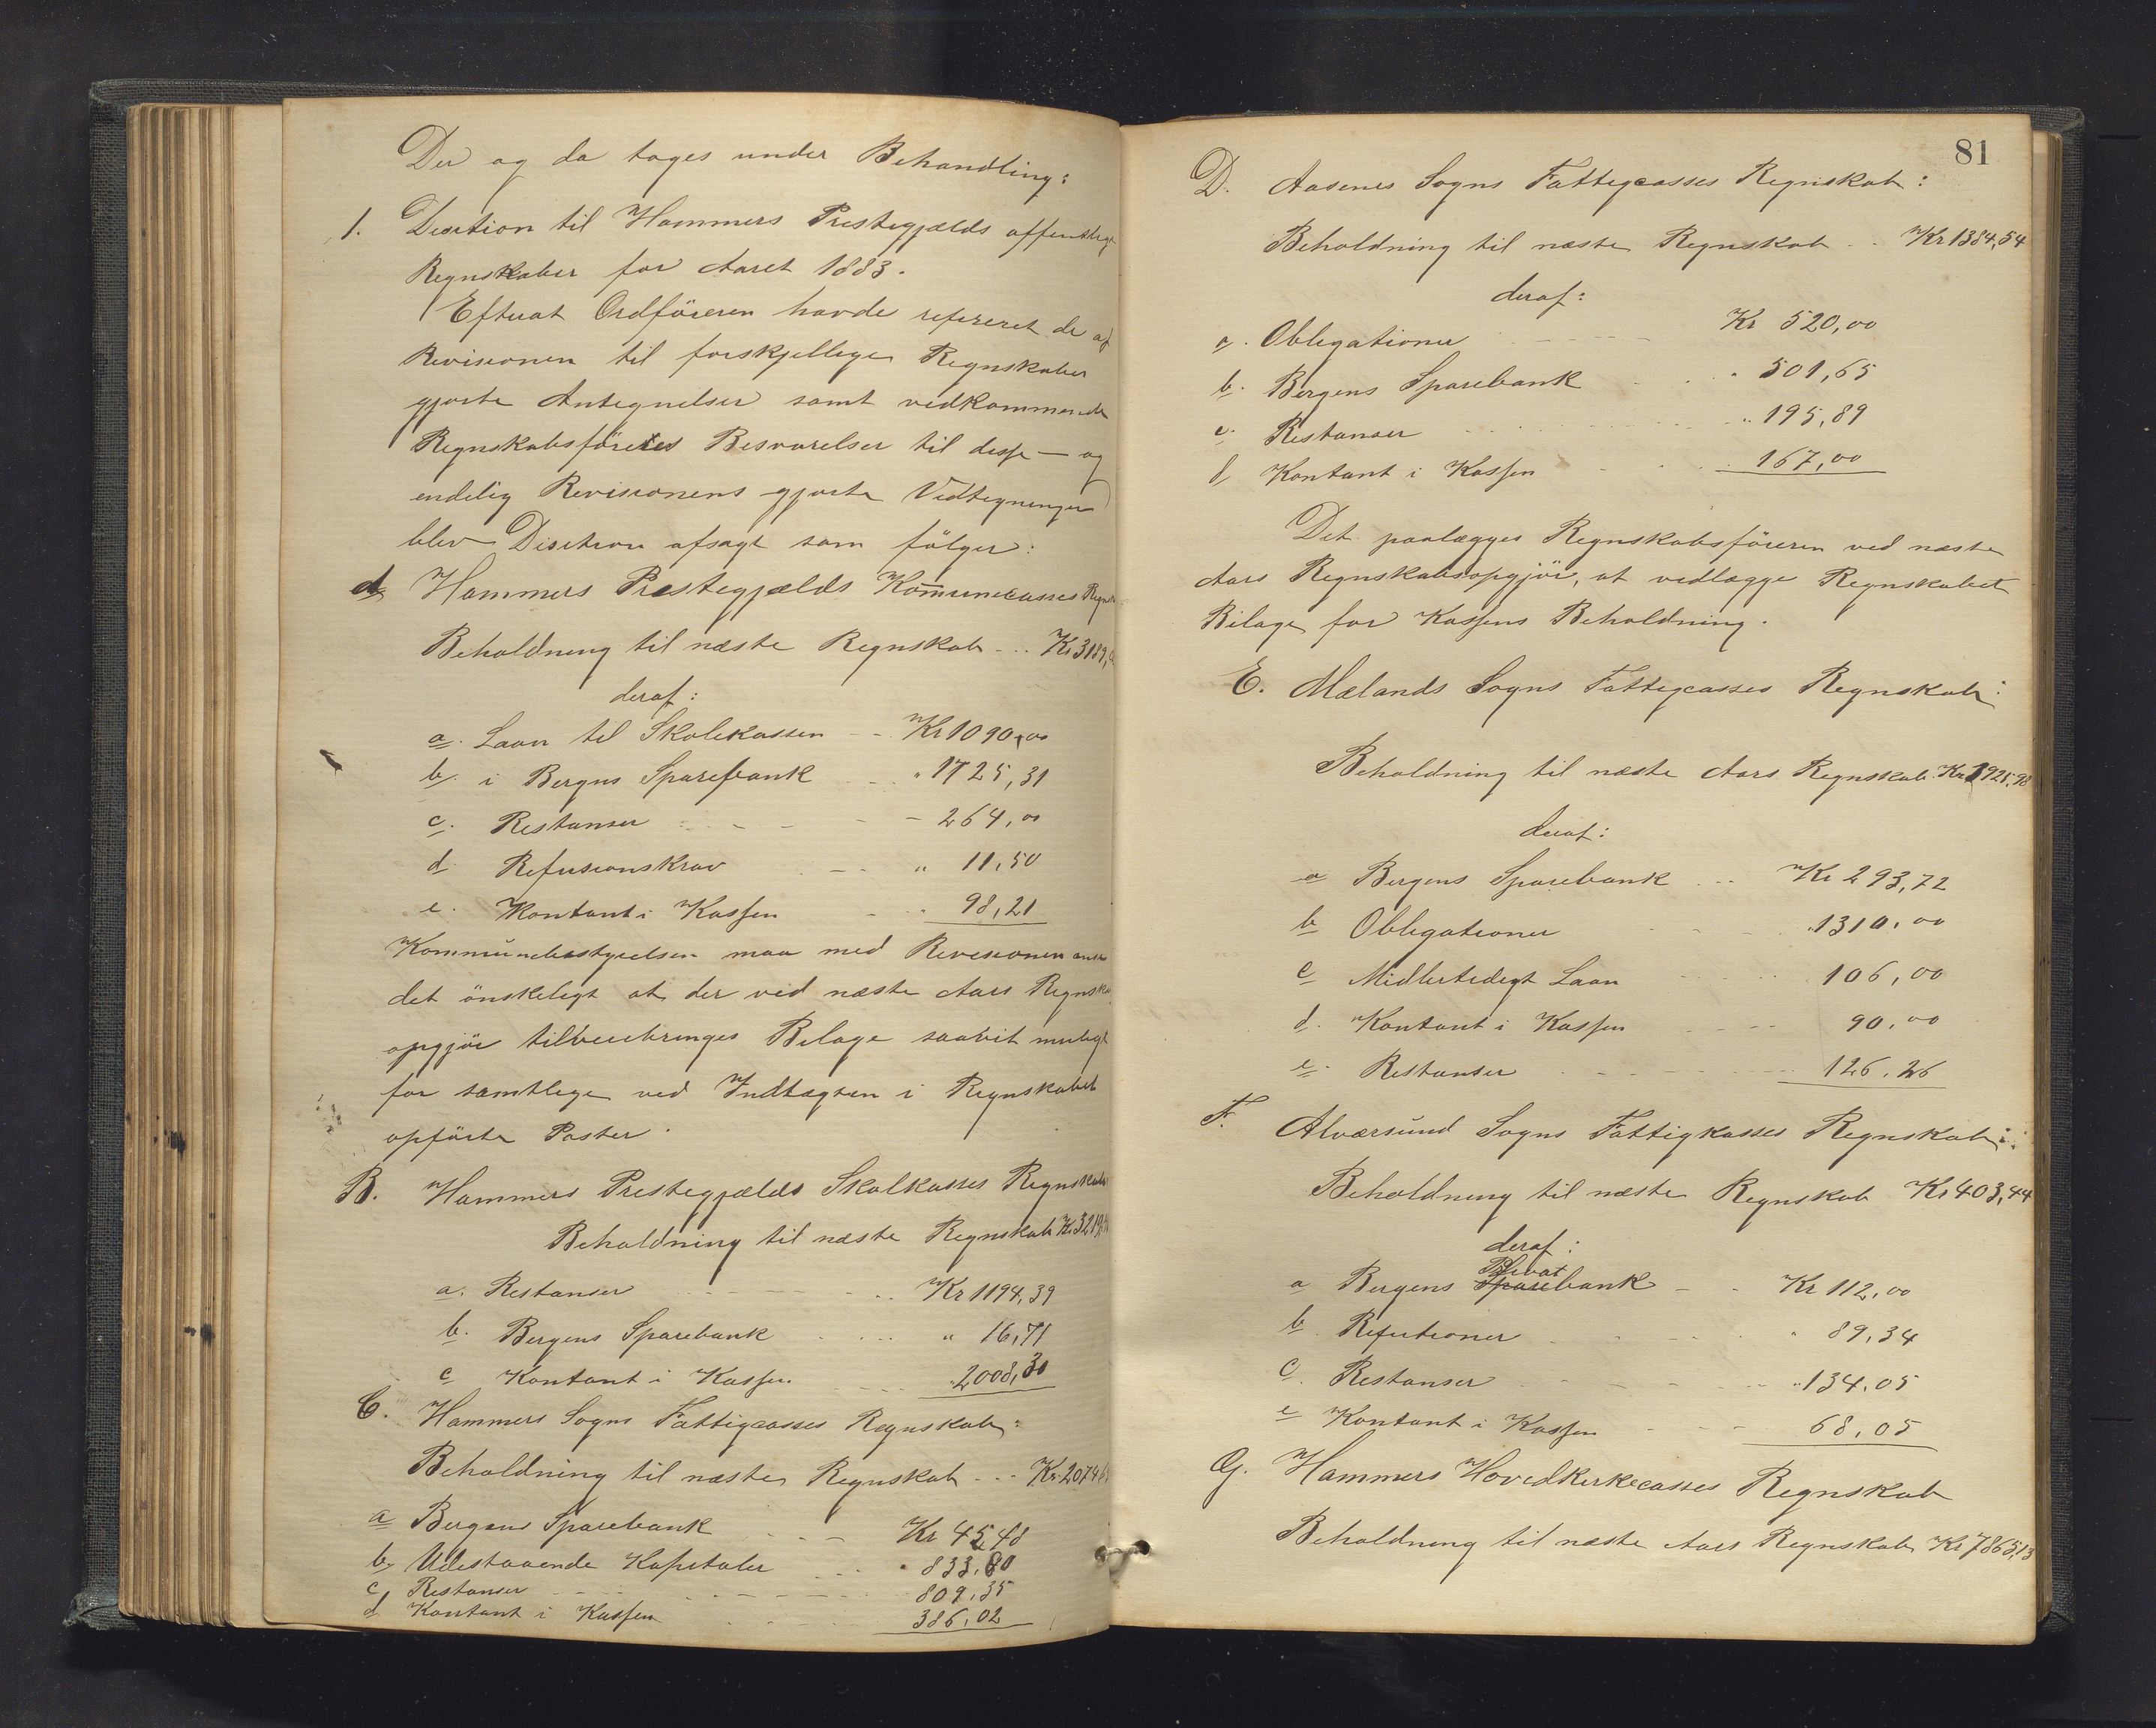 Der og da toges under Behandling:
1. Desition til Hammers Prestegjælds offentlige
Regnskaber for Aaret 1883.
Efterat Ordföreren havde refereret de af
Revisionen til forskjellige Regnskaber
gjorte Antegnelser samt vedkommende
Regnskabsföreres Besvarelser til disse – og
endelig Revisionens gjorte Vedtegninger
blev Desition afsagt som fölger:
A Hammers Prestegjælds Kommunecasses Regnsk
Beholdning til næste Regnskab - .. Kr 3189,
deraf:
a. Laan til Skolekassen - - Kr 1090,00
b. i Bergens Sparebank - .. " 1725,31
c. Restanser - - - 264,00
d. Refusionskrav - - " 11,50
e. Kontant i Kassen - .. 98,21
Kommunebestyrelsen maa med Revisionen anse
det önskeligt at der ved næste Aars Regnska
opgjör tilveiebringes Bilage saavit muligt
for samtlige ved Indtægten i Regnskabet
opförte Poster.
B. Hammers Prestegjælds Skolkasses Regnskab
Beholdning til næste Regnskab Kr 3219,
a. Restanser - - - .. Kr 1194,39
b. Bergens Sparebank . ... " 16,71
c Kontant i Kassen .... " 2008,30
C. Hammers Sogns Fattigcasses Regnskab:
Beholdning til næste Regnskab - .. Kr. 2074
a Bergens Sparebank .. - Kr 45,48
b. Udestaaende Kapitaler ... " 833,80
c Restanser - - - 809,35
d Kontant i Kassen .. .. 386,02
81
D. Aasenes Sogns Fattigcasses Regnskab:
Beholdning til næste Regnskab .. Kr 1384,54
deraf:
a. Obligationer - - - - - Kr 520,00
b. Bergens Sparebank . .. " 501,65
c. Restanser - - - - " 195,89
d Kontant i Kassen . .. 167,00
Det paalægges Regnskabsföreren ved næste
Aars Regnskabsopgjör, at vedlægge Regnskabet
Bilage for Kassens Beholdning.
E. Mælands Sogns Fattigcasses Regnskab:
Beholdning til næste Aars Regnskab. Kr 1925,98
deraf:
a Bergens Sparebank ... Kr 293,72
b Obligationer - - - " 1310,00
c Midlertidigt Laan - - - 106,00
d. Kontant i Kassen - - - 90,00
e. Restanser - - - - 126,26
F. Alværsund Sogns Fattigkasses Regnskab:
Beholdning til næste Regnskab Kr 403,44
deraf:
Privat
a Bergens Sparebank - . Kr 112,00
b Refutioner - - - " 89,34
c. Restanser - - - - " 134,05
e Kontant i Kassen - - - 68,05
G. Hammers Hovedkirkecasses Regnskab
Beholdning til næste Aars Regnskab Kr 7865,13